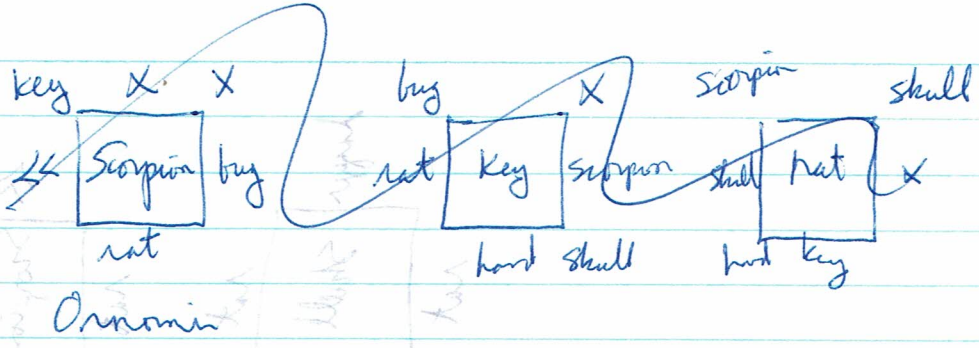 key X X bug X scorpion skull
<< Scorpion bug rat key scorpion skull rat X
rat hand skull hand key